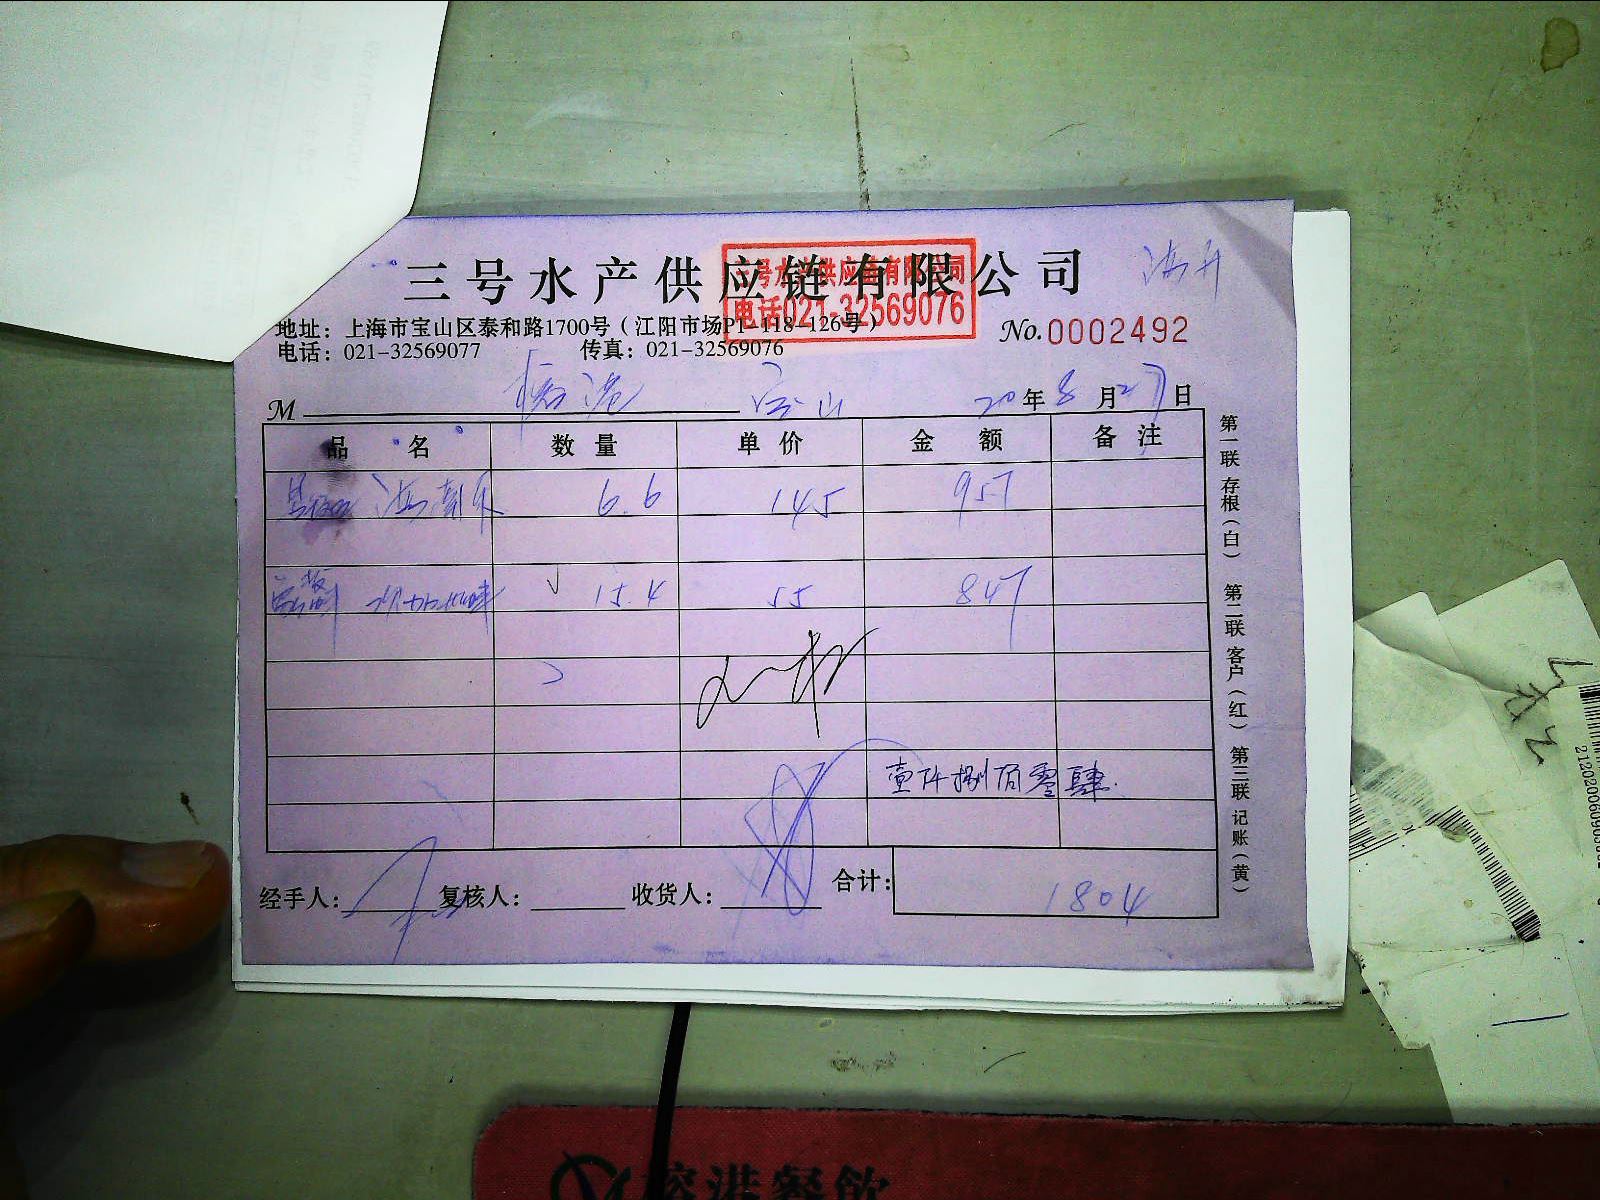 三号水产供应链有限公司
三号水产供应链有限公司
电话021-32569076
地址：上海市宝山区泰和路1700号（江阳市场P1-118-126号）
No.0002492
电话：021-32569077 传真：021-32569076
M 榕港 宝山 20年8月27日
品名 数量 单价 金额 备注
6.6 145 957
15.4 55 847
壹仟捌佰零肆.
经手人： 复核人： 收货人： 合计： 1804
第一联 存根（白） 第二联 客户（红） 第三联 记账（黄）
榕港餐饮